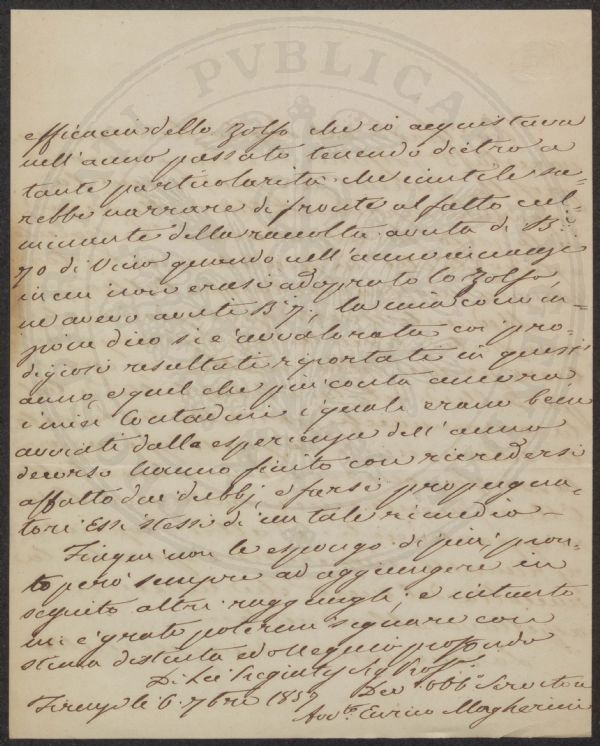 efficacia dello Zolfo che io acquistava
nell'anno passato tenendo dietro a
tante particolarità che inutile sa-
rebbe narrare di fronte al fatto cul-
minante della raccolta avuta di B.
70 di Vino quando nell'anno innanzi
in cui non erasi adoprato lo Zolfo,
ne avevo avute B 7, la mia convin-
zione dico si è avvalorata coi pro-
digiosi resultati riportati in quest'
anno, e quel che più conta ancora
i miei Contadini i quali erano bene
avviati dalla esperienza dell'anno
decorso hanno finito con ricredersi
affatto dai dubbj, e farsi propugna-
tori Essi stessi di un tale rimedio —
Fin qui non le espongo di più, pron-
to però sempre ad aggiungere in
seguito altri ragguagli, e intanto
mi è grato potermi segnare con
stima distinta ed ossequio profondo
Di Lei Pregiatissimo Sig Prof
Firenze li 6. 7bre 1857 Dev. Obb. Servitore
Avv. Enrico Magherini
PVBLICA